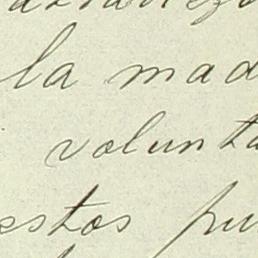 la mad
volunta
estos pu